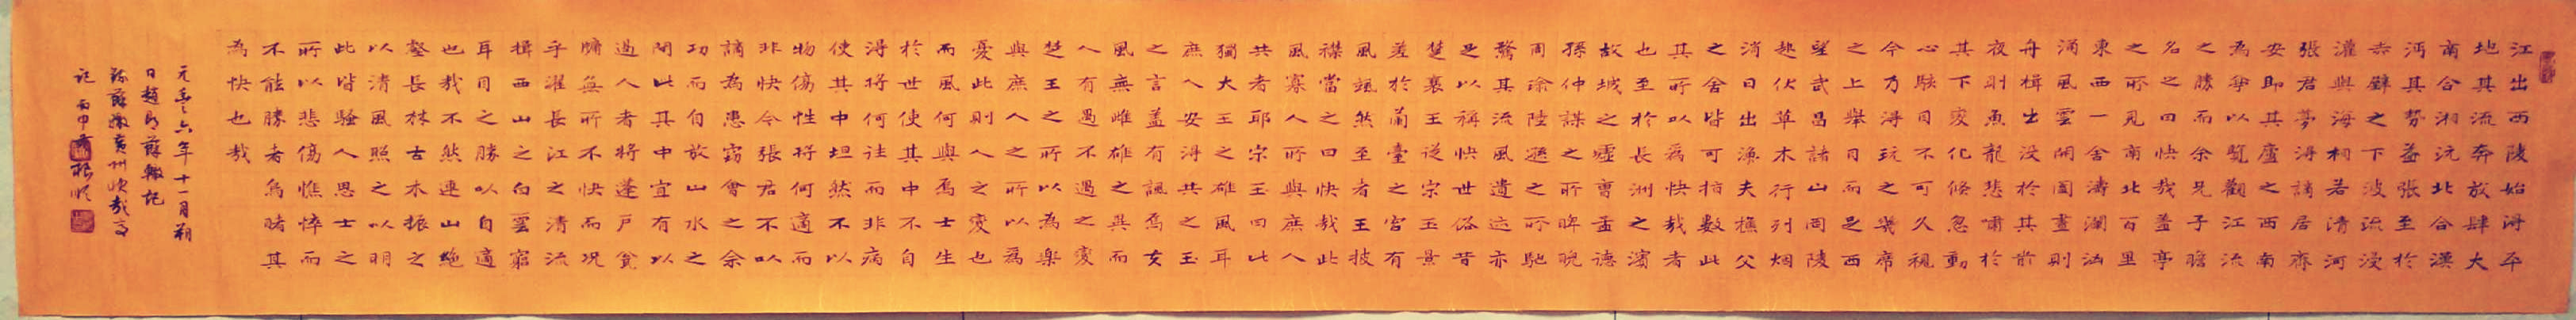 江出西陵始得平
地其流奔放肆大
南合湘沅北合漢
沔其勢益張至於
赤壁之下波流浸
灌與海相若清河
張君夢得謫居齊
安即其廬之西南
為亭以覽觀江流
之勝而余兄子瞻
名之曰快哉蓋亭
之所見南北百里
東西一舍濤瀾洶
湧風雲開闔晝則
舟楫出沒於其前
夜則魚龍悲嘯於
其下變化倏忽動
心駭目不可久視
今乃得玩之几席
之上舉目而足西
望武昌諸山岡陵
起伏草木行列烟
消日出漁夫樵父
之舍皆可指數此
其所以為快哉者
也至於長洲之濱
故城之墟曹孟德
孫仲謀之所睥睨
周瑜陸遜之所馳
騖其流風遺迹亦
足以稱快世俗昔
楚襄王從宗玉景
差於蘭臺之宮有
風颯然至者王披
襟當之曰快哉此
風寡人所與庶人
共者耶宗玉曰此
獨大王之雄風耳
庶人安得共之玉
之言蓋有諷焉女
風無雌雄之異而
人有遇不遇之變
楚王之所以為樂
與庶人之所以為
憂此則人之變也
而風何與焉士生
於世使其中不自
得將何往而非病
使其中坦然不以
物傷性將何適而
非快今張君不以
謫為患竊會之余
功而自放山水之
間此其中宜有以
過人者將蓬戶瓮
牖無所不快而况
乎濯長江之清流
揖西山之白雲窮
耳目之勝以自適
也哉不然連山絕
壑長林古木振之
以清風照之以明
此皆騷人思士之
所以悲傷憔悴而
不能勝者烏睹其
為快也哉
元豐六年十一月朔
日趙郡蘇轍記
錄蘇轍黃州快哉亭
記 丙申春